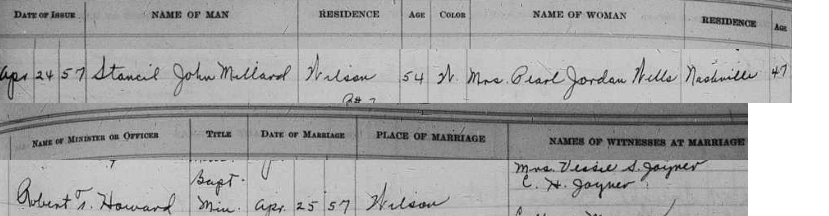 DATE OF ISSUE NAME OF MAN RESIDENCE AGE COLOR NAME OF WOMAN RESIDENCE AGE
Apr 24 57 Stancil John Millard Wilson 54 W. Mrs. Pearl Jordan Wells Nashville 47
NAME OF MINISTER OR OFFICER TITLE DATE OF MARRIAGE PLACE OF MARRIAGE NAMES OF WITNESSES AT MARRIAGE
Mrs. Vessie S. Joyner
Bapt. C. H. Joyner
Robert T. Howard Min. Apr. 25 57 Wilson